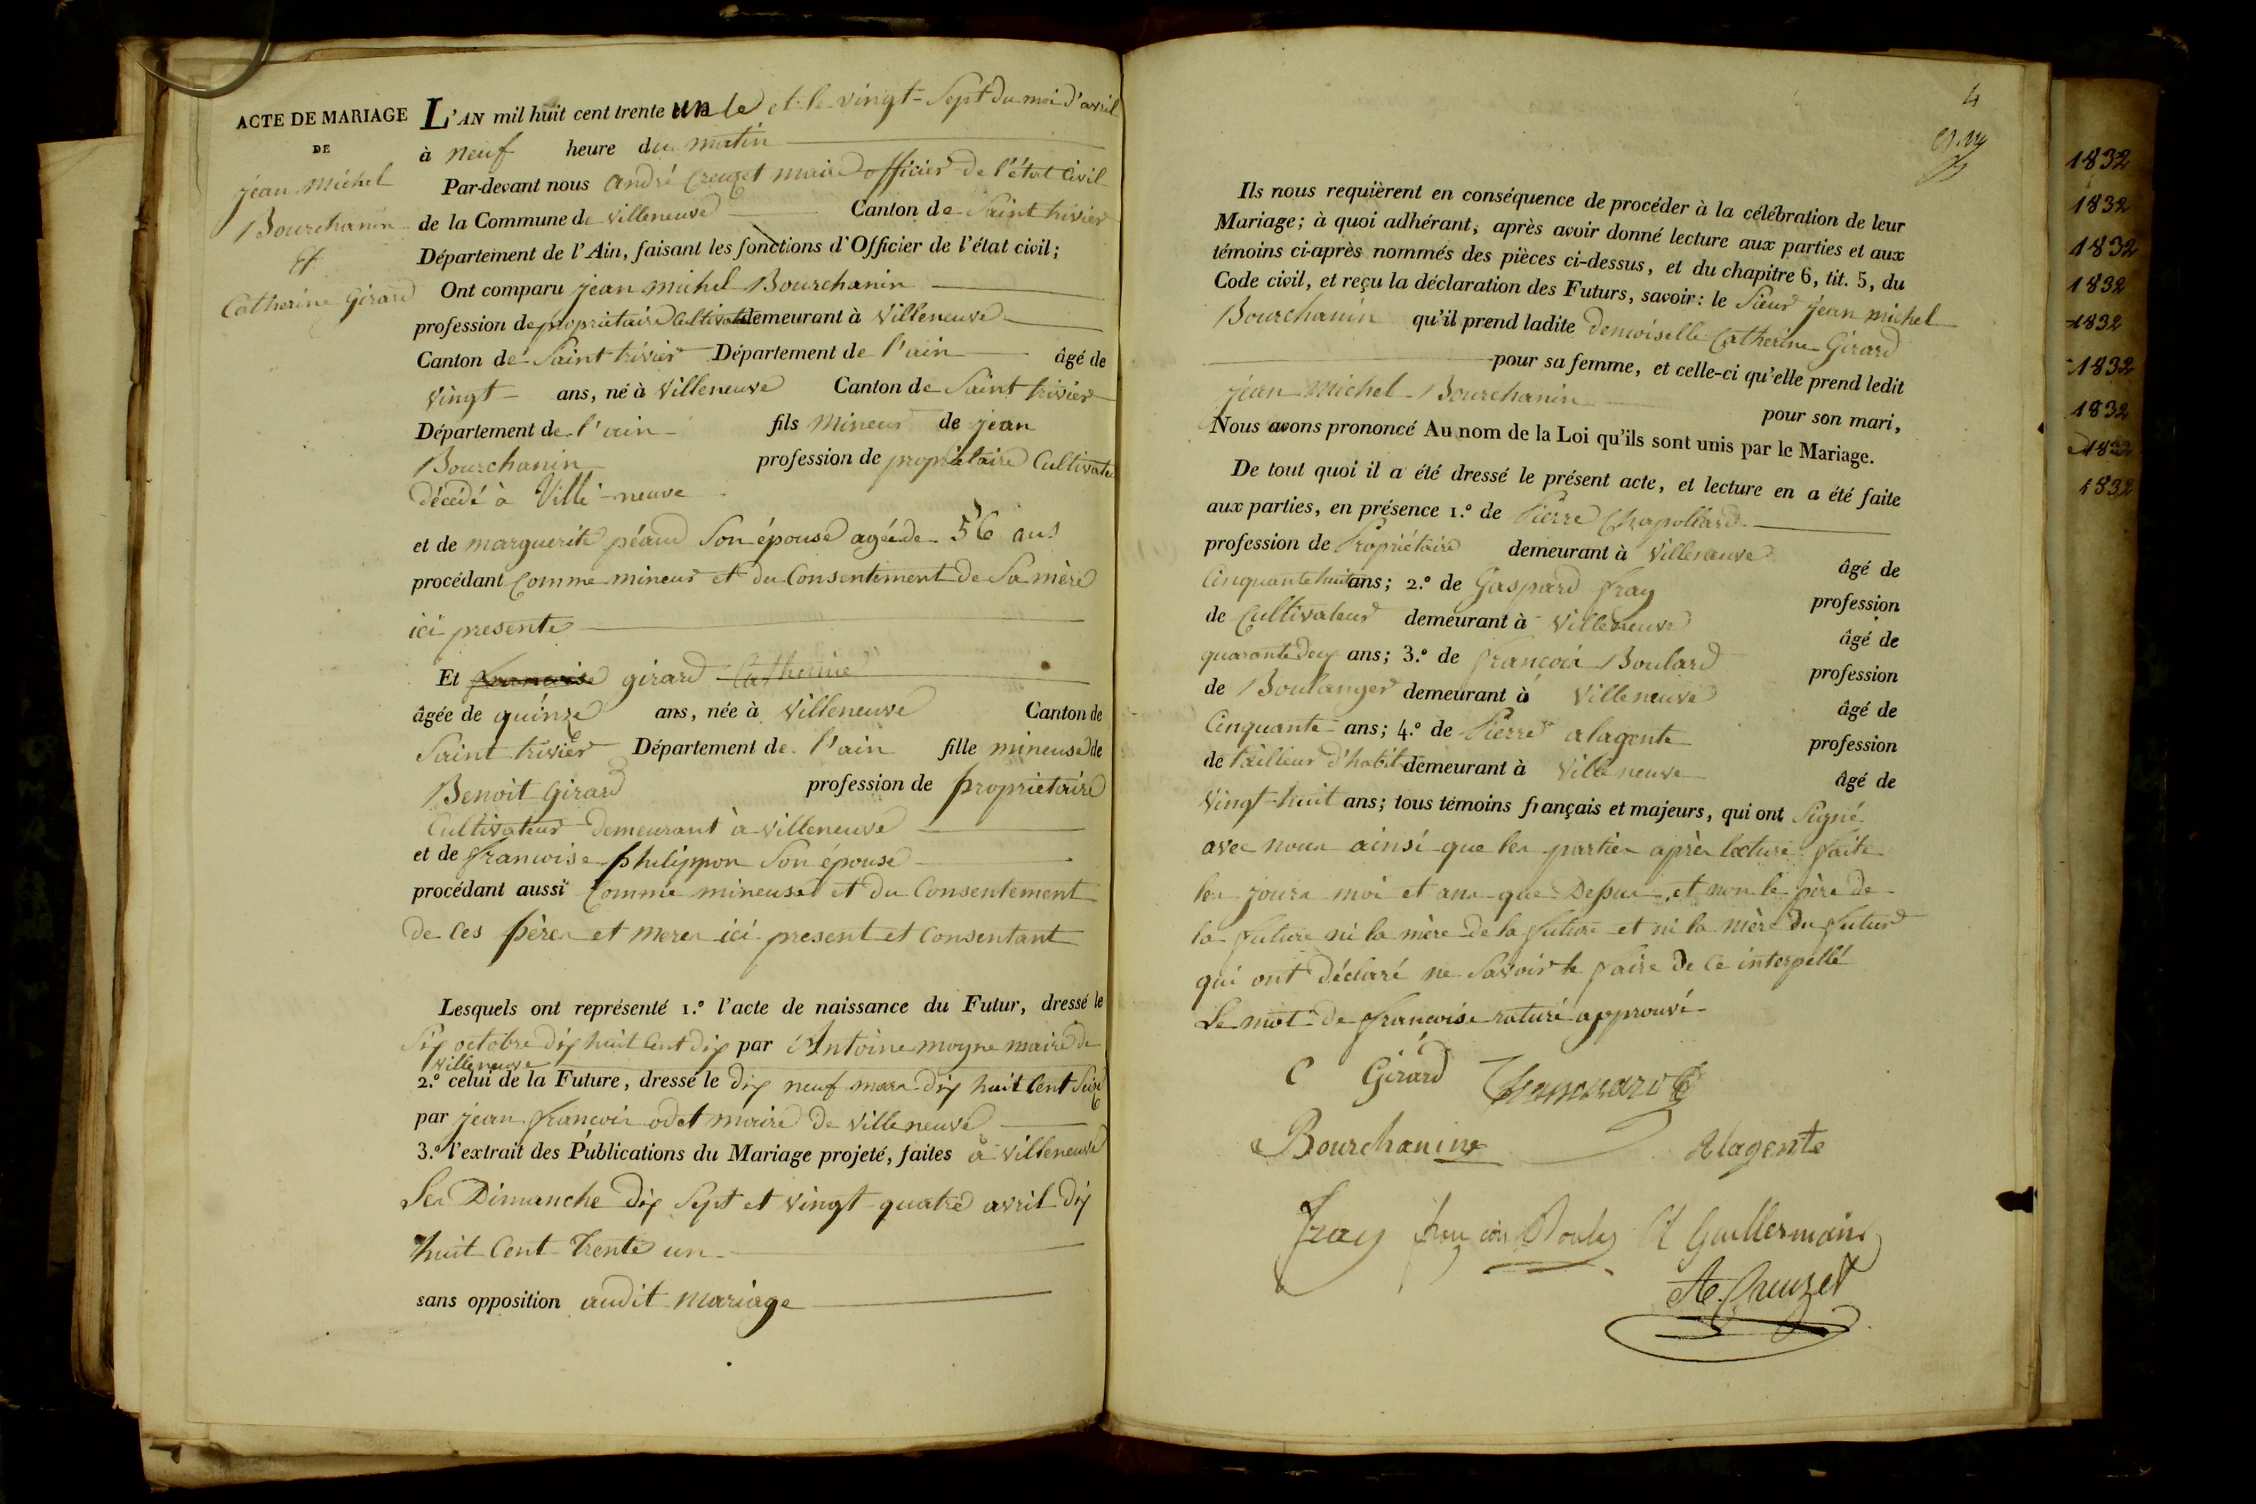 ACTE DE MARIAGE
DE
jean michel
Bourchanin
et
Catherine Girard
L'AN mil huit cent trente un le et le vingt-Sept du moi d'avril
à neuf heure du matin
Par-devant nous andré Creuzet maire officier de l'état Civil
de la Commune de villeneuve Canton de Saint trivier
Département de l'Ain, faisant les fonctions d'Officier de l'état civil;
Ont comparu jean michel Bourchanin
profession de propriétaire Cultivateur demeurant à villeneuve
Canton de Saint trivier Département de l'ain âgé de
vingt ans, né à villeneuve Canton de Saint trivier
Département de l'ain fils mineur de jean
Bourchanin profession de propriétaire Cultivate
décédé à Ville-neuve
et de marguerite péaud Son épouse agée de 56 ans
procédant Comme mineur et du Consentement de Sa mère
ici presente
Et francoise girard Catherine
âgée de quinze ans, née à villeneuve Canton de
Saint trivier Département de l'ain fille mineuse de
Benoit Girard profession de propriétaire
Cultivateur demeurant à villeneuve
et de francoise philippon Son épouse
procédant aussi Comme mineuse et du Consentement
de Ces pères et meres ici present et Consentant
Lesquels ont représenté 1.º l'acte de naissance du Futur, dressé le
Six octobre dix huit Cent dix par Antoine moyne maire de
villeneuve
2.º celui de la Future, dressé le dix neuf mars dix huit Cent Seize
par jean francois odet maire de villeneuve
3.º l'extrait des Publications du Mariage projeté, faites à villeneuve
Les Dimanche dix Sept et vingt quatre avril dix
huit Cent Trente un
sans opposition audit mariage
4
Ils nous requièrent en conséquence de procéder à la célébration de leur
Mariage; à quoi adhérant, après avoir donné lecture aux parties et aux
témoins ci-après nommés des pièces ci-dessus, et du chapitre 6, tit. 5, du
Code civil, et reçu la déclaration des Futurs, savoir: le Sieur jean michel
Bourchanin qu'il prend ladite demoiselle Catherine Girard
pour sa femme, et celle-ci qu'elle prend ledit
jean Michel Bourchanin pour son mari,
Nous avons prononcé Au nom de la Loi qu'ils sont unis par le Mariage.
De tout quoi il a été dressé le présent acte, et lecture en a été faite
aux parties, en présence 1.º de Pierre Chapollard
profession de Propriétaire demeurant à villeneuve âgé de
Cinquante huit ans; 2.º de Gaspard fray profession
de Cultivateur demeurant à villeneuve âgé de
quarante deux ans; 3.º de francois Boulard profession
de Boulanger demeurant à villeneuve âgé de
Cinquante ans; 4.º de Pierre alagente profession
de tailleur d'habit demeurant à ville neuve âgé de
vingt-huit ans; tous témoins français et majeurs, qui ont Signé
avec nous ainsi que les parties après lecture faite
les jours moi et ans que Dessus, et non le père de
la future ni la mère de la future et ni la mère du futur
qui ont déclaré ne Savoir le faire de Ce interpellé
Le mot de francoise raturé approuvé
C Girard
Bourchanin Alagente
fray Guillermain
Creuzet
1832
1832
1832
1832
1832
1832
1832
1832
1832